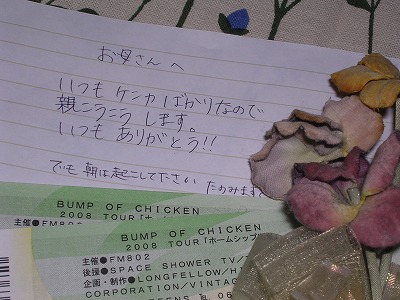 お母さんへ
いつもケンカばかりなので
親こうこうします。
いつもありがとう!!
でも朝は起こしてください たのみます
BUMP OF CHICKEN
2008 TOUR「ホ
主催●FM802
BUMP OF CHICKEN
2008 TOUR「ホームシップ
主催●FM802
後援●SPACE SHOWER TV/
企画・制作●LONGFELLOW/H
CORPORATION/VINTAG